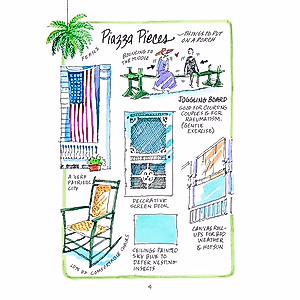 Piazza Pieces
~THINGS TO PUT
ON A PORCH
FERNS
BOUNCING TO
THE MIDDLE
JOGGLING BOARD
GOOD FOR COURTING
COUPLES & FOR
RHEUMATISM.
(GENTLE
EXERCISE)
A VERY
PATRIOTIC
CITY
DECORATIVE
SCREEN DOOR
CANVAS ROLL-
UPS FOR BAD
WEATHER
& HOT SUN
CEILINGS PAINTED
SKY BLUE TO
DETER NESTING
INSECTS
LOTS OF COMFORTABLE CHAIRS